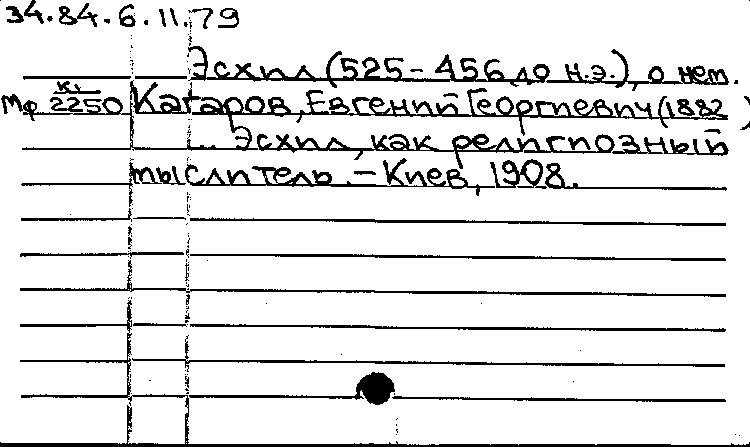 34.84.6.11.79
Эсхил (525-456 до н.э.), о нем.
Мф К. 2250 Кагаров, Евгений Георгиевич (1882 )
... Эсхил, как религиозный
мыслитель. - Киев, 1908.